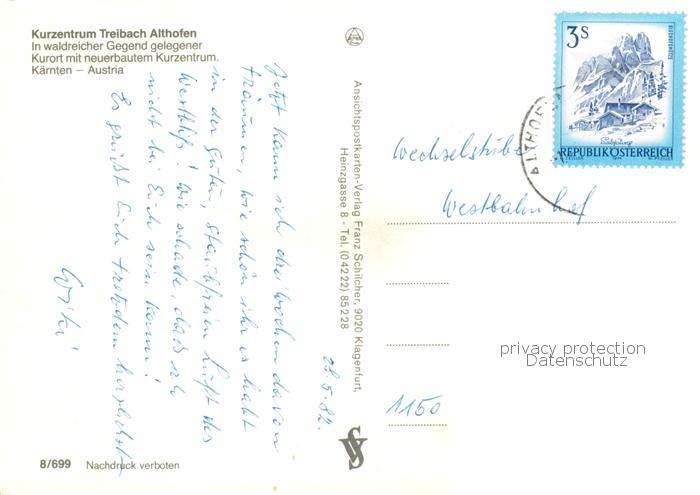 Kurzentrum Treibach Althofen
In waldreicher Gegend gelegener
Kurort mit neuerbautem Kurzentrum.
Kärnten – Austria
28.5.82.
Jetzt kann ich drei Wochen davon
träumen, wie schön ihr es habt
in der guten, staubfreien Luft des
Westbhfs! Wie schade, dass ich
nicht bei Euch sein kann!
Es grüßt Euch trotzdem herzlichst
8/699 Nachdruck verboten
Ansichtspostkarten-Verlag Franz Schilcher, 9020 Klagenfurt,
Heinzgasse 8 - Tel. (04222) 85228
3 S
REPUBLIK ÖSTERREICH
ALTHOFEN
Wechselstube
Westbahnhof
1150
privacy protection
Datenschutz